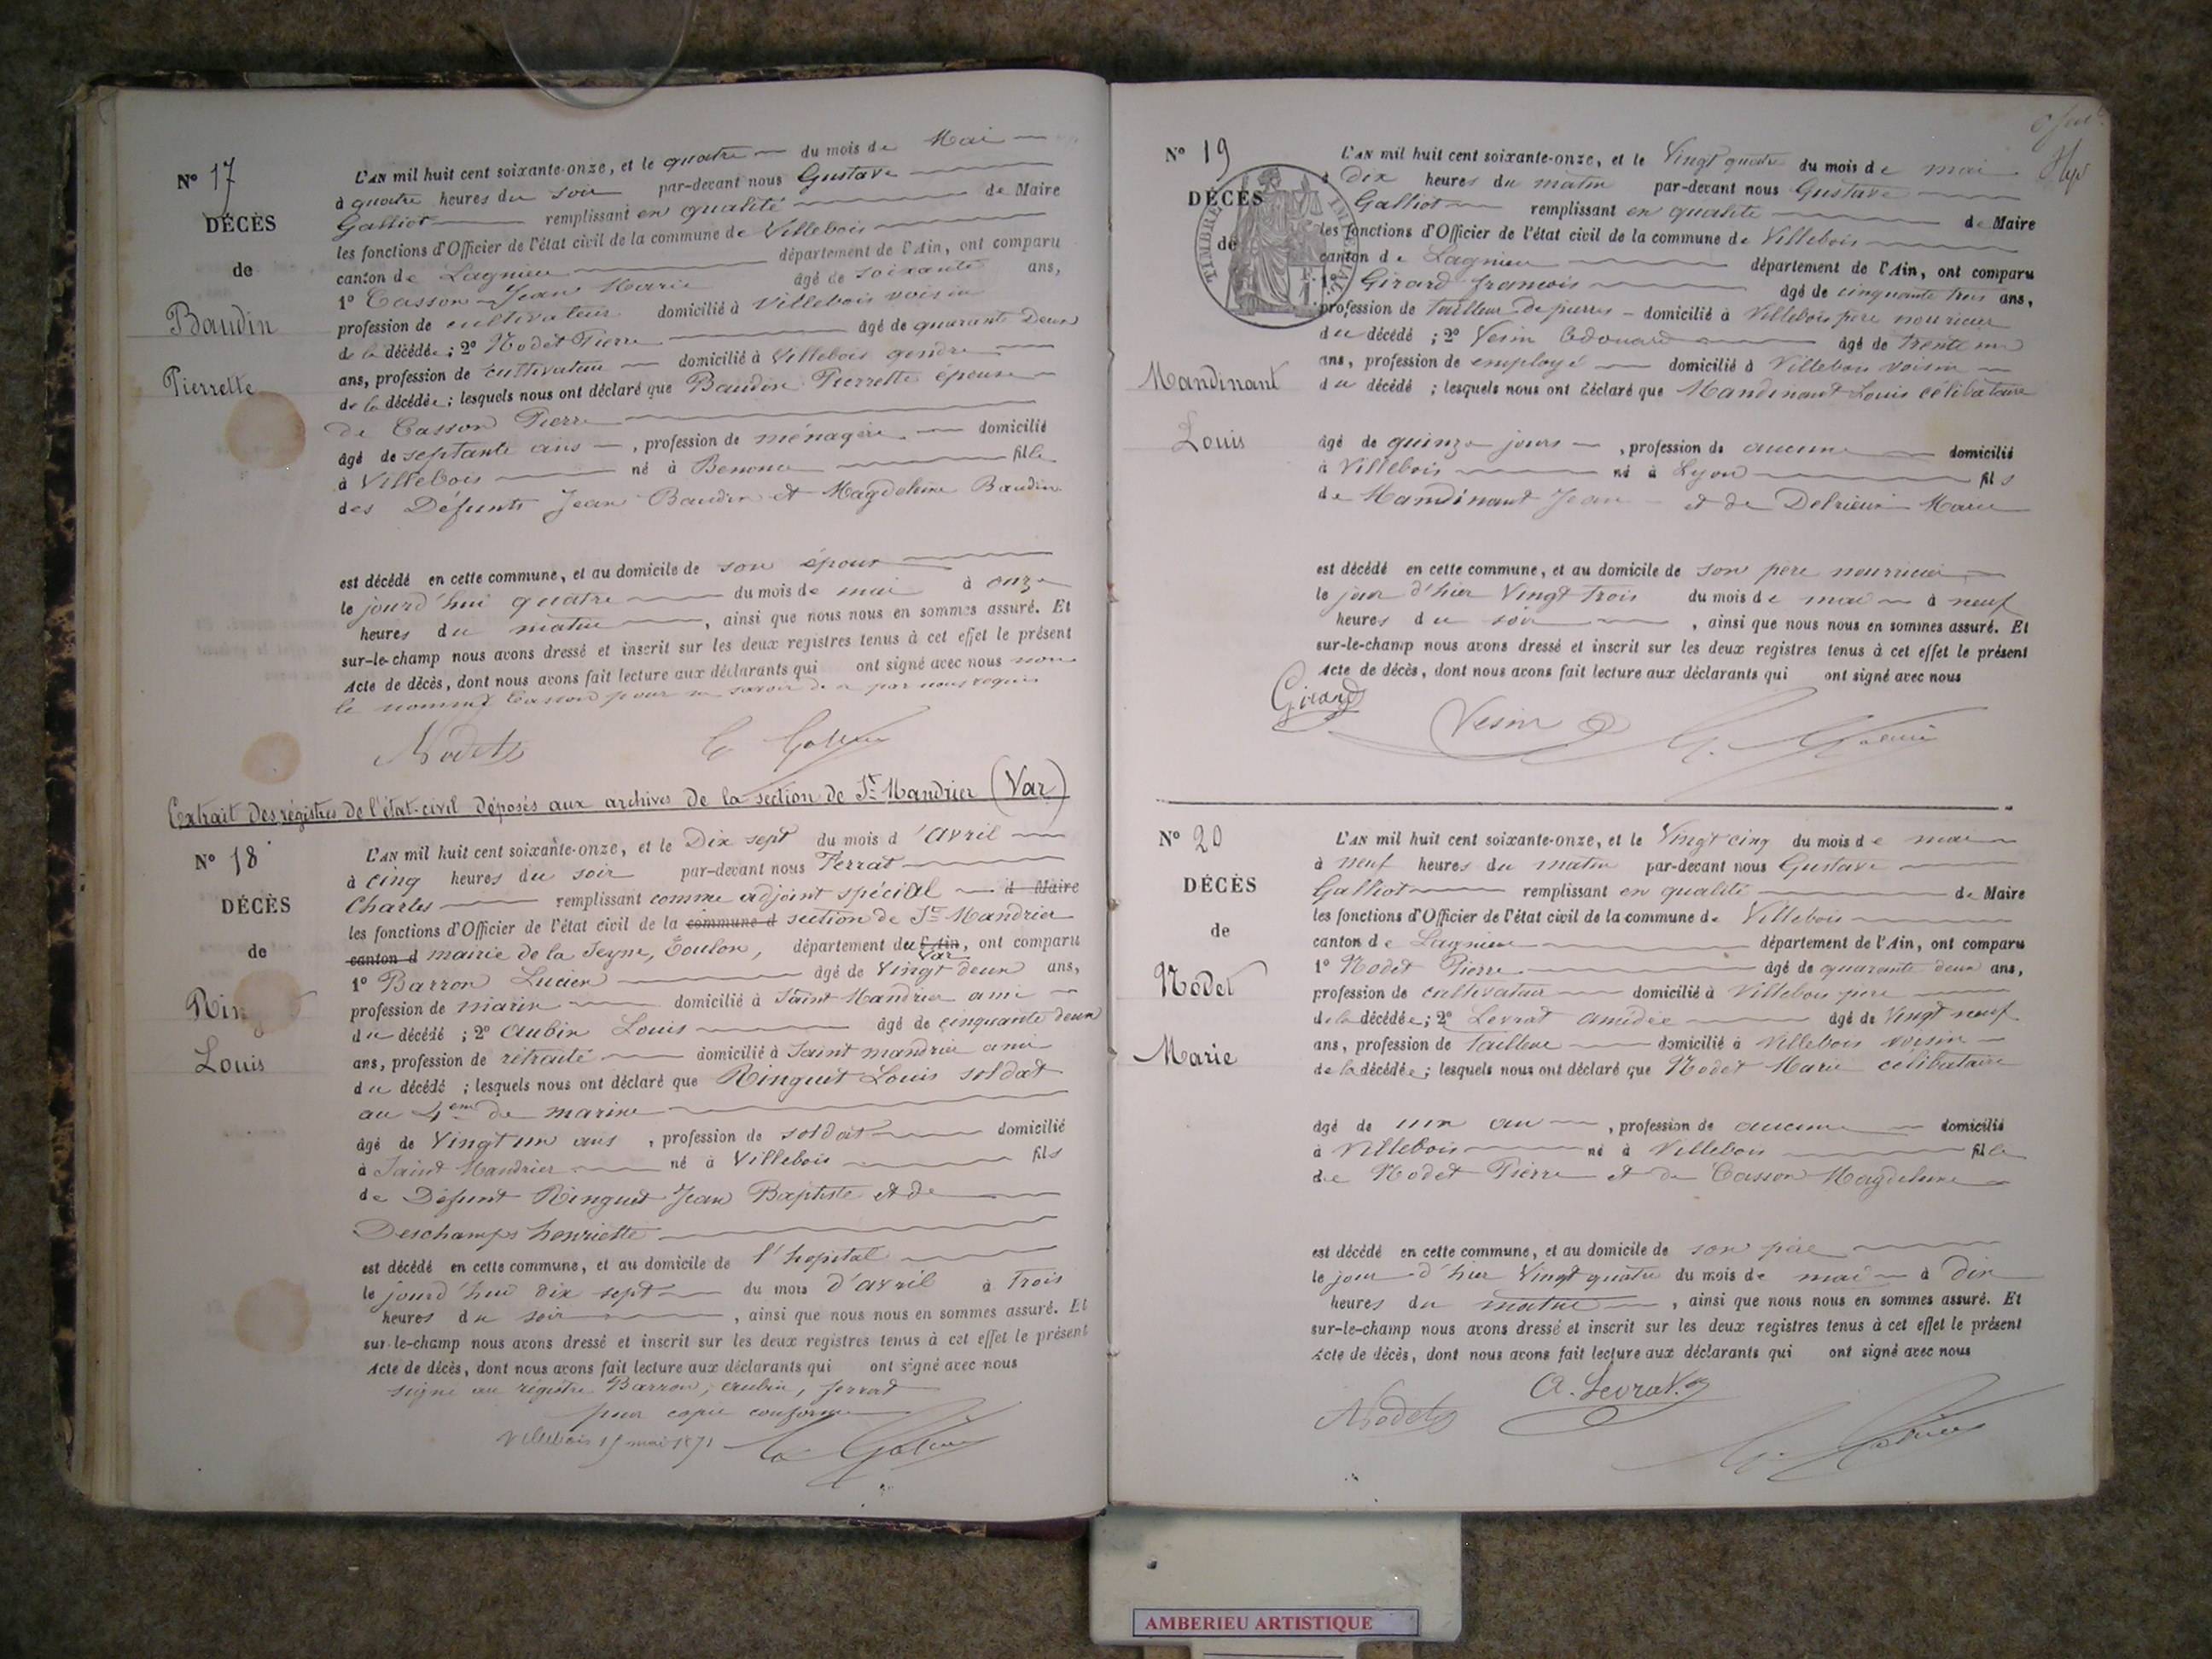 N° 17
DÉCÈS
de
Baudin
Pierrette
L'AN mil huit cent soixante-onze, et le quatre du mois de Mai
à quatre heures du soir par-devant nous Gustave
Galliot remplissant en qualité de Maire
les fonctions d'Officier de l'état civil de la commune de Villebois
canton de Lagnieu département de l'Ain, ont comparu
1° Casson Jean Marie âgé de soixante ans,
profession de cultivateur domicilié à Villebois voisin
de la décédée; 2° Nodet Pierre âgé de quarante Deux
ans, profession de cultivateur domicilié à Villebois gendre
de la décédée; lesquels nous ont déclaré que Baudin Pierrette épouse
de Casson Pierre
âgé de septante ans, profession de ménagère domicilié
à Villebois né à Benonce fille
des Défunts Jean Baudin et Magdeleine Baudin
est décédé en cette commune, et au domicile de son époux
le jourd'hui quatre du mois de mai à onze
heures du matin, ainsi que nous nous en sommes assuré. Et
sur-le-champ nous avons dressé et inscrit sur les deux registres tenus à cet effet le présent
Acte de décès, dont nous avons fait lecture aux déclarants qui ont signé avec nous non
le nommé Casson pour ne savoir de ce par nous requis
Nodet
Extrait des régistres de l'état-civil déposés aux archives de la section de St Mandrier (Var)
N° 18
DÉCÈS
de
Rin
Louis
L'AN mil huit cent soixante-onze, et le Dix sept du mois d'avril
à cinq heures du soir par-devant nous Ferrat
Charles remplissant comme adjoint spécial d Maire
les fonctions d'Officier de l'état civil de la commune d section de St Mandrier
canton d mairie de la Seyne, Toulon, département du l'Ain Var, ont comparu
1° Barron Lucien âgé de Vingt deux ans,
profession de marin domicilié à Saint Mandrier ami
du décédé; 2° Aubin Louis âgé de cinquante deux
ans, profession de retraité domicilié à Saint mandrier ami
du décédé; lesquels nous ont déclaré que Ringuet Louis soldat
au 4eme de marine
âgé de Vingt un ans, profession de soldat domicilié
à Saint Mandrier né à Villebois fils
de Défunt Ringuet Jean Baptiste et de
Deschamps henriette
est décédé en cette commune, et au domicile de l'hopital
le jourd'hui dix sept du mois d'avril à Trois
heures du soir, ainsi que nous nous en sommes assuré. Et
sur-le-champ nous avons dressé et inscrit sur les deux registres tenus à cet effet le présent
Acte de décès, dont nous avons fait lecture aux déclarants qui ont signé avec nous
signé au régistre Barron, Aubin, ferrat
pour copie conforme
Villebois 15 mai 1871
N° 19
DÉCÈS
de
Mandinant
Louis
TIMBRE IMPERIAL
L'AN mil huit cent soixante-onze, et le Vingt quatre du mois de mai
à Dix heures du matin par-devant nous Gustave
Galliot remplissant en qualité de Maire
les fonctions d'Officier de l'état civil de la commune de Villebois
canton de Lagnieu département de l'Ain, ont comparu
1° Girard francois âgé de cinquante trois ans,
profession de tailleur de pierres domicilié à Villebois père nouricier
du décédé; 2° Vesin Edouard âgé de trente un
ans, profession de employé domicilié à Villebois voisin
du décédé; lesquels nous ont déclaré que Mandinant Louis célibataire
âgé de quinze jours, profession de aucune domicilié
à Villebois né à Lyon fils
de Mandinant Jean et de Delrieux Marie
est décédé en cette commune, et au domicile de son père nourricier
le jour d'hier Vingt trois du mois de mai à neuf
heures du soir, ainsi que nous nous en sommes assuré. Et
sur-le-champ nous avons dressé et inscrit sur les deux registres tenus à cet effet le présent
Acte de décès, dont nous avons fait lecture aux déclarants qui ont signé avec nous
Girard
Vesin
N° 20
DÉCÈS
de
Nodet
Marie
L'AN mil huit cent soixante-onze, et le Vingt cinq du mois de mai
à neuf heures du matin par-devant nous Gustave
Galliot remplissant en qualité de Maire
les fonctions d'Officier de l'état civil de la commune de Villebois
canton de Lagnieu département de l'Ain, ont comparu
1° Nodet Pierre âgé de quarante deux ans,
profession de cultivateur domicilié à Villebois père
de la décédée; 2° Levrat Amédée âgé de Vingt neuf
ans, profession de Tailleur domicilié à Villebois voisin
de la décédée; lesquels nous ont déclaré que Nodet Marie célibataire
âgé de un an, profession de aucune domicilié
à Villebois né à Villebois fille
de Nodet Pierre et de Casson Magdeleine
est décédé en cette commune, et au domicile de son père
le jour d'hier Vingt quatre du mois de mai à Dix
heures du matin, ainsi que nous nous en sommes assuré. Et
sur-le-champ nous avons dressé et inscrit sur les deux registres tenus à cet effet le présent
Acte de décès, dont nous avons fait lecture aux déclarants qui ont signé avec nous
Nodet
A. Levrat
AMBERIEU ARTISTIQUE